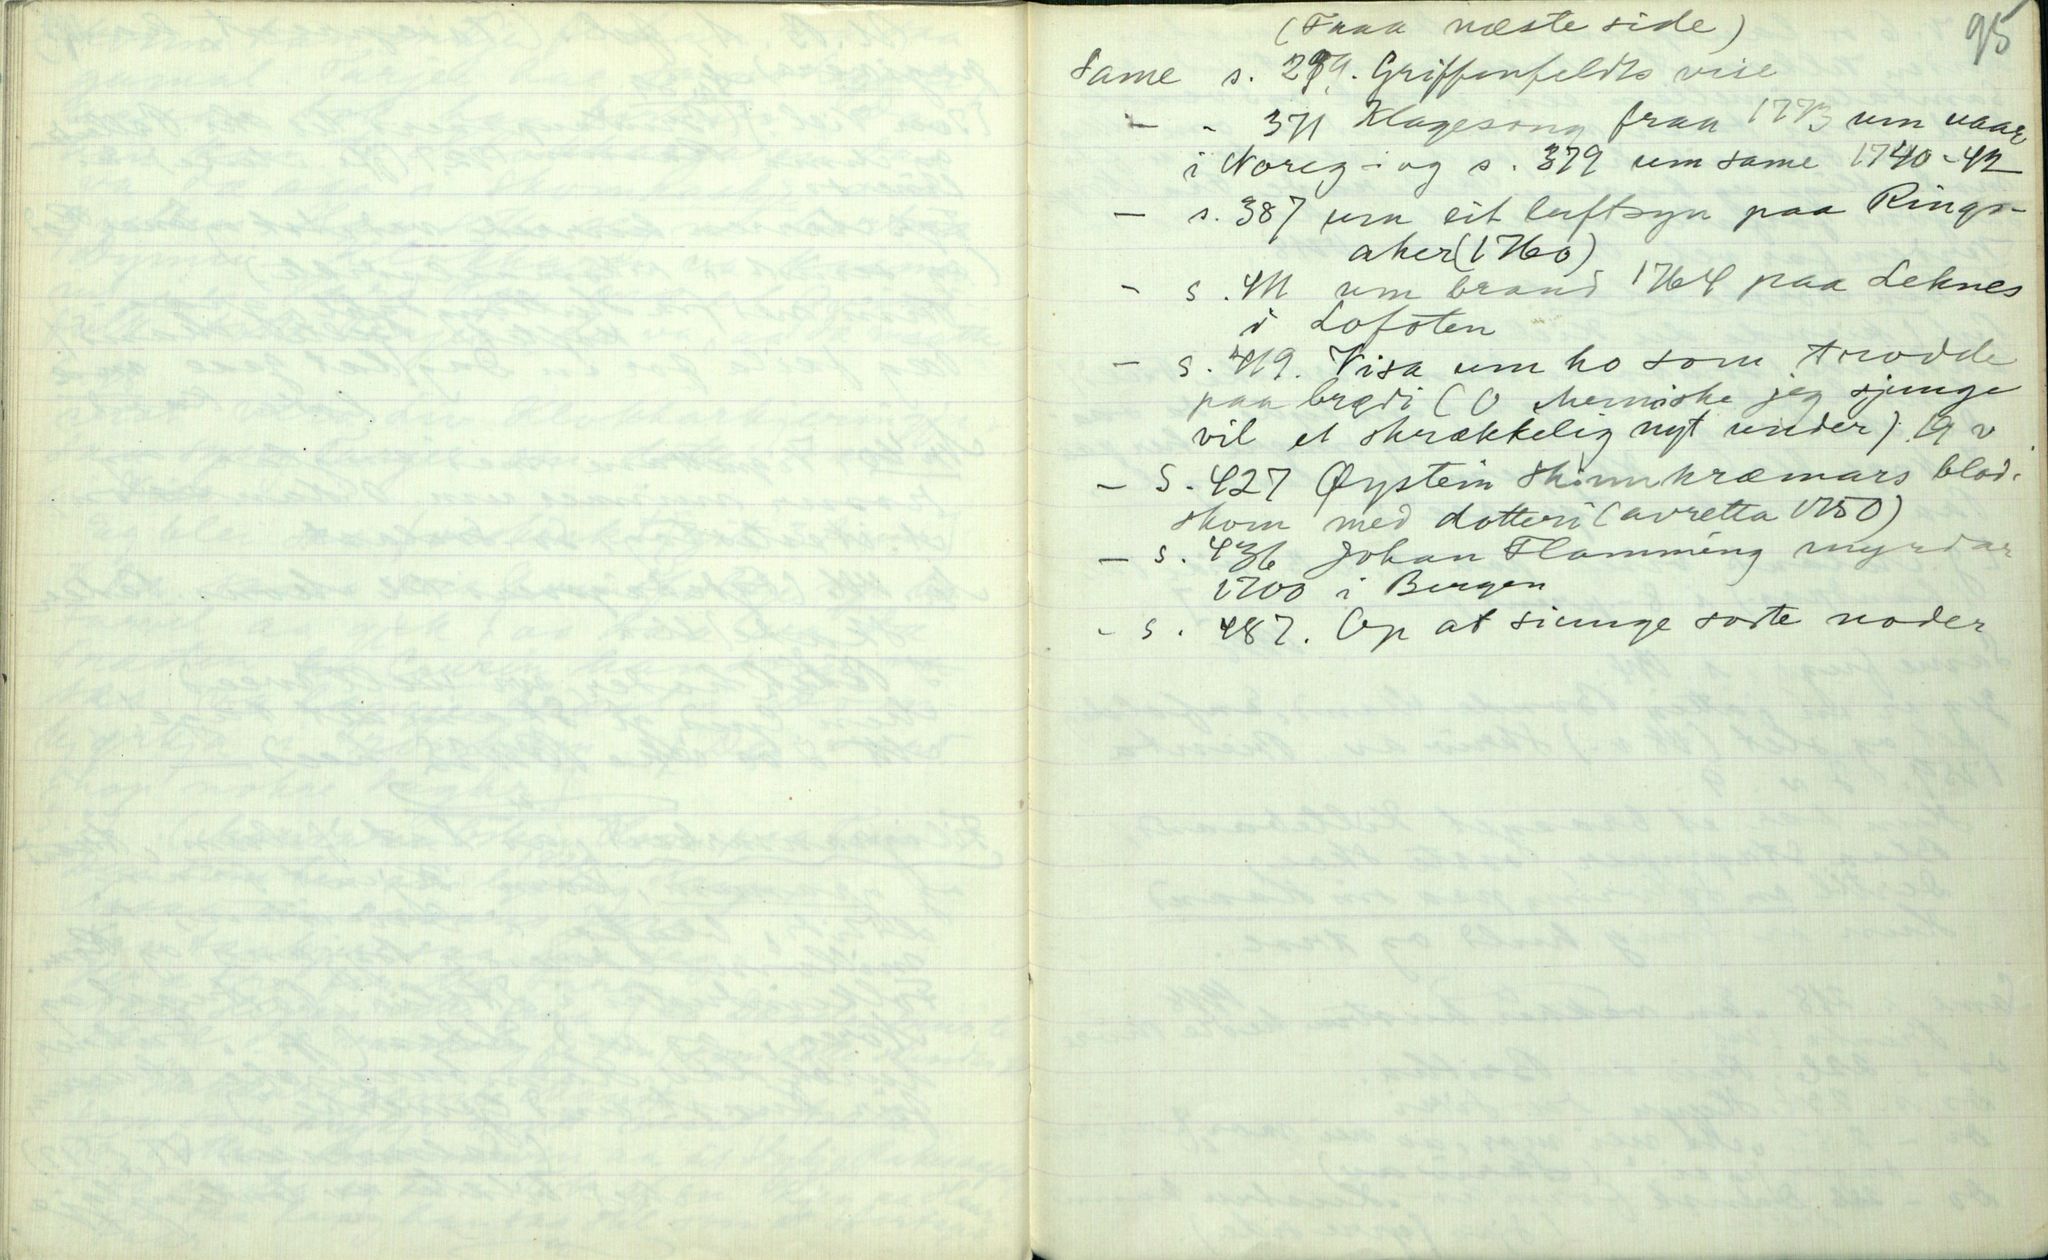 95
(Fraa næste side)
Same s. 299. Griffenfeldts vise
— - 371 Klagesong fraa 1773 um uaar
i Noreg - og s. 379 um same 1740-42
— s. 387 um eit luftsyn paa Rings-
aker (1760)
— s. 411 um brand 1764 paa Leknes
i Lofoten
— s. 419. Visa um ho som trødde
paa brødi (O Menniske jeg sjunge
vil et skrækkelig nyt under) 19 v.
— S. 427 Øystein Skinnkræmars blod-
skom med dotteri (avretta 1750)
— s. 436 Johan Flamming myrdar
1700 i Bergen
- s. 487. Op at siunge sorte noder